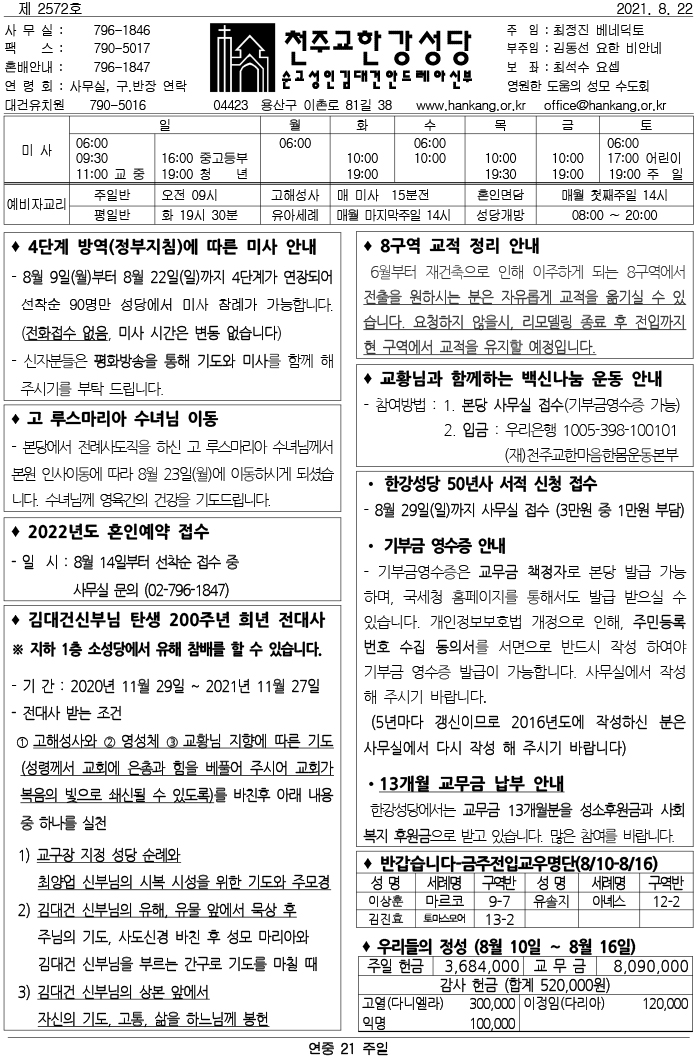 제 2572호 2021. 8. 22
사 무 실 : 796-1846
팩 스 : 790-5017
혼배안내 : 796-1847
연 령 회 : 사무실, 구.반장 연락
대건유치원 790-5016
천주교한강성당
순교성인김대건안드레아신부
주 임 : 최정진 베네딕토
부주임 : 김동선 요한 비안네
보 좌 : 최석수 요셉
영원한 도움의 성모 수도회
04423 용산구 이촌로 81길 38 www.hankang.or.kr office@hankang.or.kr
일 월 화 수 목 금 토
미 사
06:00 06:00 06:00 06:00
09:30 16:00 중고등부 10:00 10:00 10:00 10:00 17:00 어린이
11:00 교 중 19:00 청 년 19:00 19:30 19:00 19:00 주 일
예비자교리
주일반 오전 09시 고해성사 매 미사 15분전 혼인면담 매월 첫째주일 14시
평일반 화 19시 30분 유아세례 매월 마지막주일 14시 성당개방 08:00 ~ 20:00
♦ 4단계 방역(정부지침)에 따른 미사 안내
- 8월 9일(월)부터 8월 22일(일)까지 4단계가 연장되어
선착순 90명만 성당에서 미사 참례가 가능합니다.
(전화접수 없음, 미사 시간은 변동 없습니다)
- 신자분들은 평화방송을 통해 기도와 미사를 함께 해
주시기를 부탁 드립니다.
♦ 고 루스마리아 수녀님 이동
- 본당에서 전례사도직을 하신 고 루스마리아 수녀님께서
본원 인사이동에 따라 8월 23일(월)에 이동하시게 되셨습
니다. 수녀님께 영육간의 건강을 기도드립니다.
♦ 2022년도 혼인예약 접수
- 일 시 : 8월 14일부터 선착순 접수 중
사무실 문의 (02-796-1847)
♦ 김대건신부님 탄생 200주년 희년 전대사
※ 지하 1층 소성당에서 유해 참배를 할 수 있습니다.
- 기 간 : 2020년 11월 29일 ~ 2021년 11월 27일
- 전대사 받는 조건
① 고해성사와 ② 영성체 ③ 교황님 지향에 따른 기도
(성령께서 교회에 은총과 힘을 베풀어 주시어 교회가
복음의 빛으로 쇄신될 수 있도록)를 바친후 아래 내용
중 하나를 실천
1) 교구장 지정 성당 순례와
최양업 신부님의 시복 시성을 위한 기도와 주모경
2) 김대건 신부님의 유해, 유물 앞에서 묵상 후
주님의 기도, 사도신경 바친 후 성모 마리아와
김대건 신부님을 부르는 간구로 기도를 마칠 때
3) 김대건 신부님의 상본 앞에서
자신의 기도, 고통, 삶을 하느님께 봉헌
♦ 8구역 교적 정리 안내
6월부터 재건축으로 인해 이주하게 되는 8구역에서
전출을 원하시는 분은 자유롭게 교적을 옮기실 수 있
습니다. 요청하지 않을시, 리모델링 종료 후 전입까지
현 구역에서 교적을 유지할 예정입니다.
♦ 교황님과 함께하는 백신나눔 운동 안내
- 참여방법 : 1. 본당 사무실 접수(기부금영수증 가능)
2. 입금 : 우리은행 1005-398-100101
(재)천주교한마음한몸운동본부
• 한강성당 50년사 서적 신청 접수
- 8월 29일(일)까지 사무실 접수 (3만원 중 1만원 부담)
• 기부금 영수증 안내
- 기부금영수증은 교무금 책정자로 본당 발급 가능
하며, 국세청 홈페이지를 통해서도 발급 받으실 수
있습니다. 개인정보보호법 개정으로 인해, 주민등록
번호 수집 동의서를 서면으로 반드시 작성 하여야
기부금 영수증 발급이 가능합니다. 사무실에서 작성
해 주시기 바랍니다.
(5년마다 갱신이므로 2016년도에 작성하신 분은
사무실에서 다시 작성 해 주시기 바랍니다)
• 13개월 교무금 납부 안내
한강성당에서는 교무금 13개월분을 성소후원금과 사회
복지 후원금으로 받고 있습니다. 많은 참여를 바랍니다.
♦ 반갑습니다-금주전입교우명단(8/10-8/16)
성 명 세례명 구역반 성 명 세례명 구역반
이상훈 마르코 9-7 유솔지 아녜스 12-2
김진효 토마스모어 13-2
♦ 우리들의 정성 (8월 10일 ~ 8월 16일)
주일 헌금 3,684,000 교 무 금 8,090,000
감사 헌금 (합계 520,000원)
고열(다니엘라) 300,000 이정임(다리아) 120,000
익명 100,000
연중 21 주일